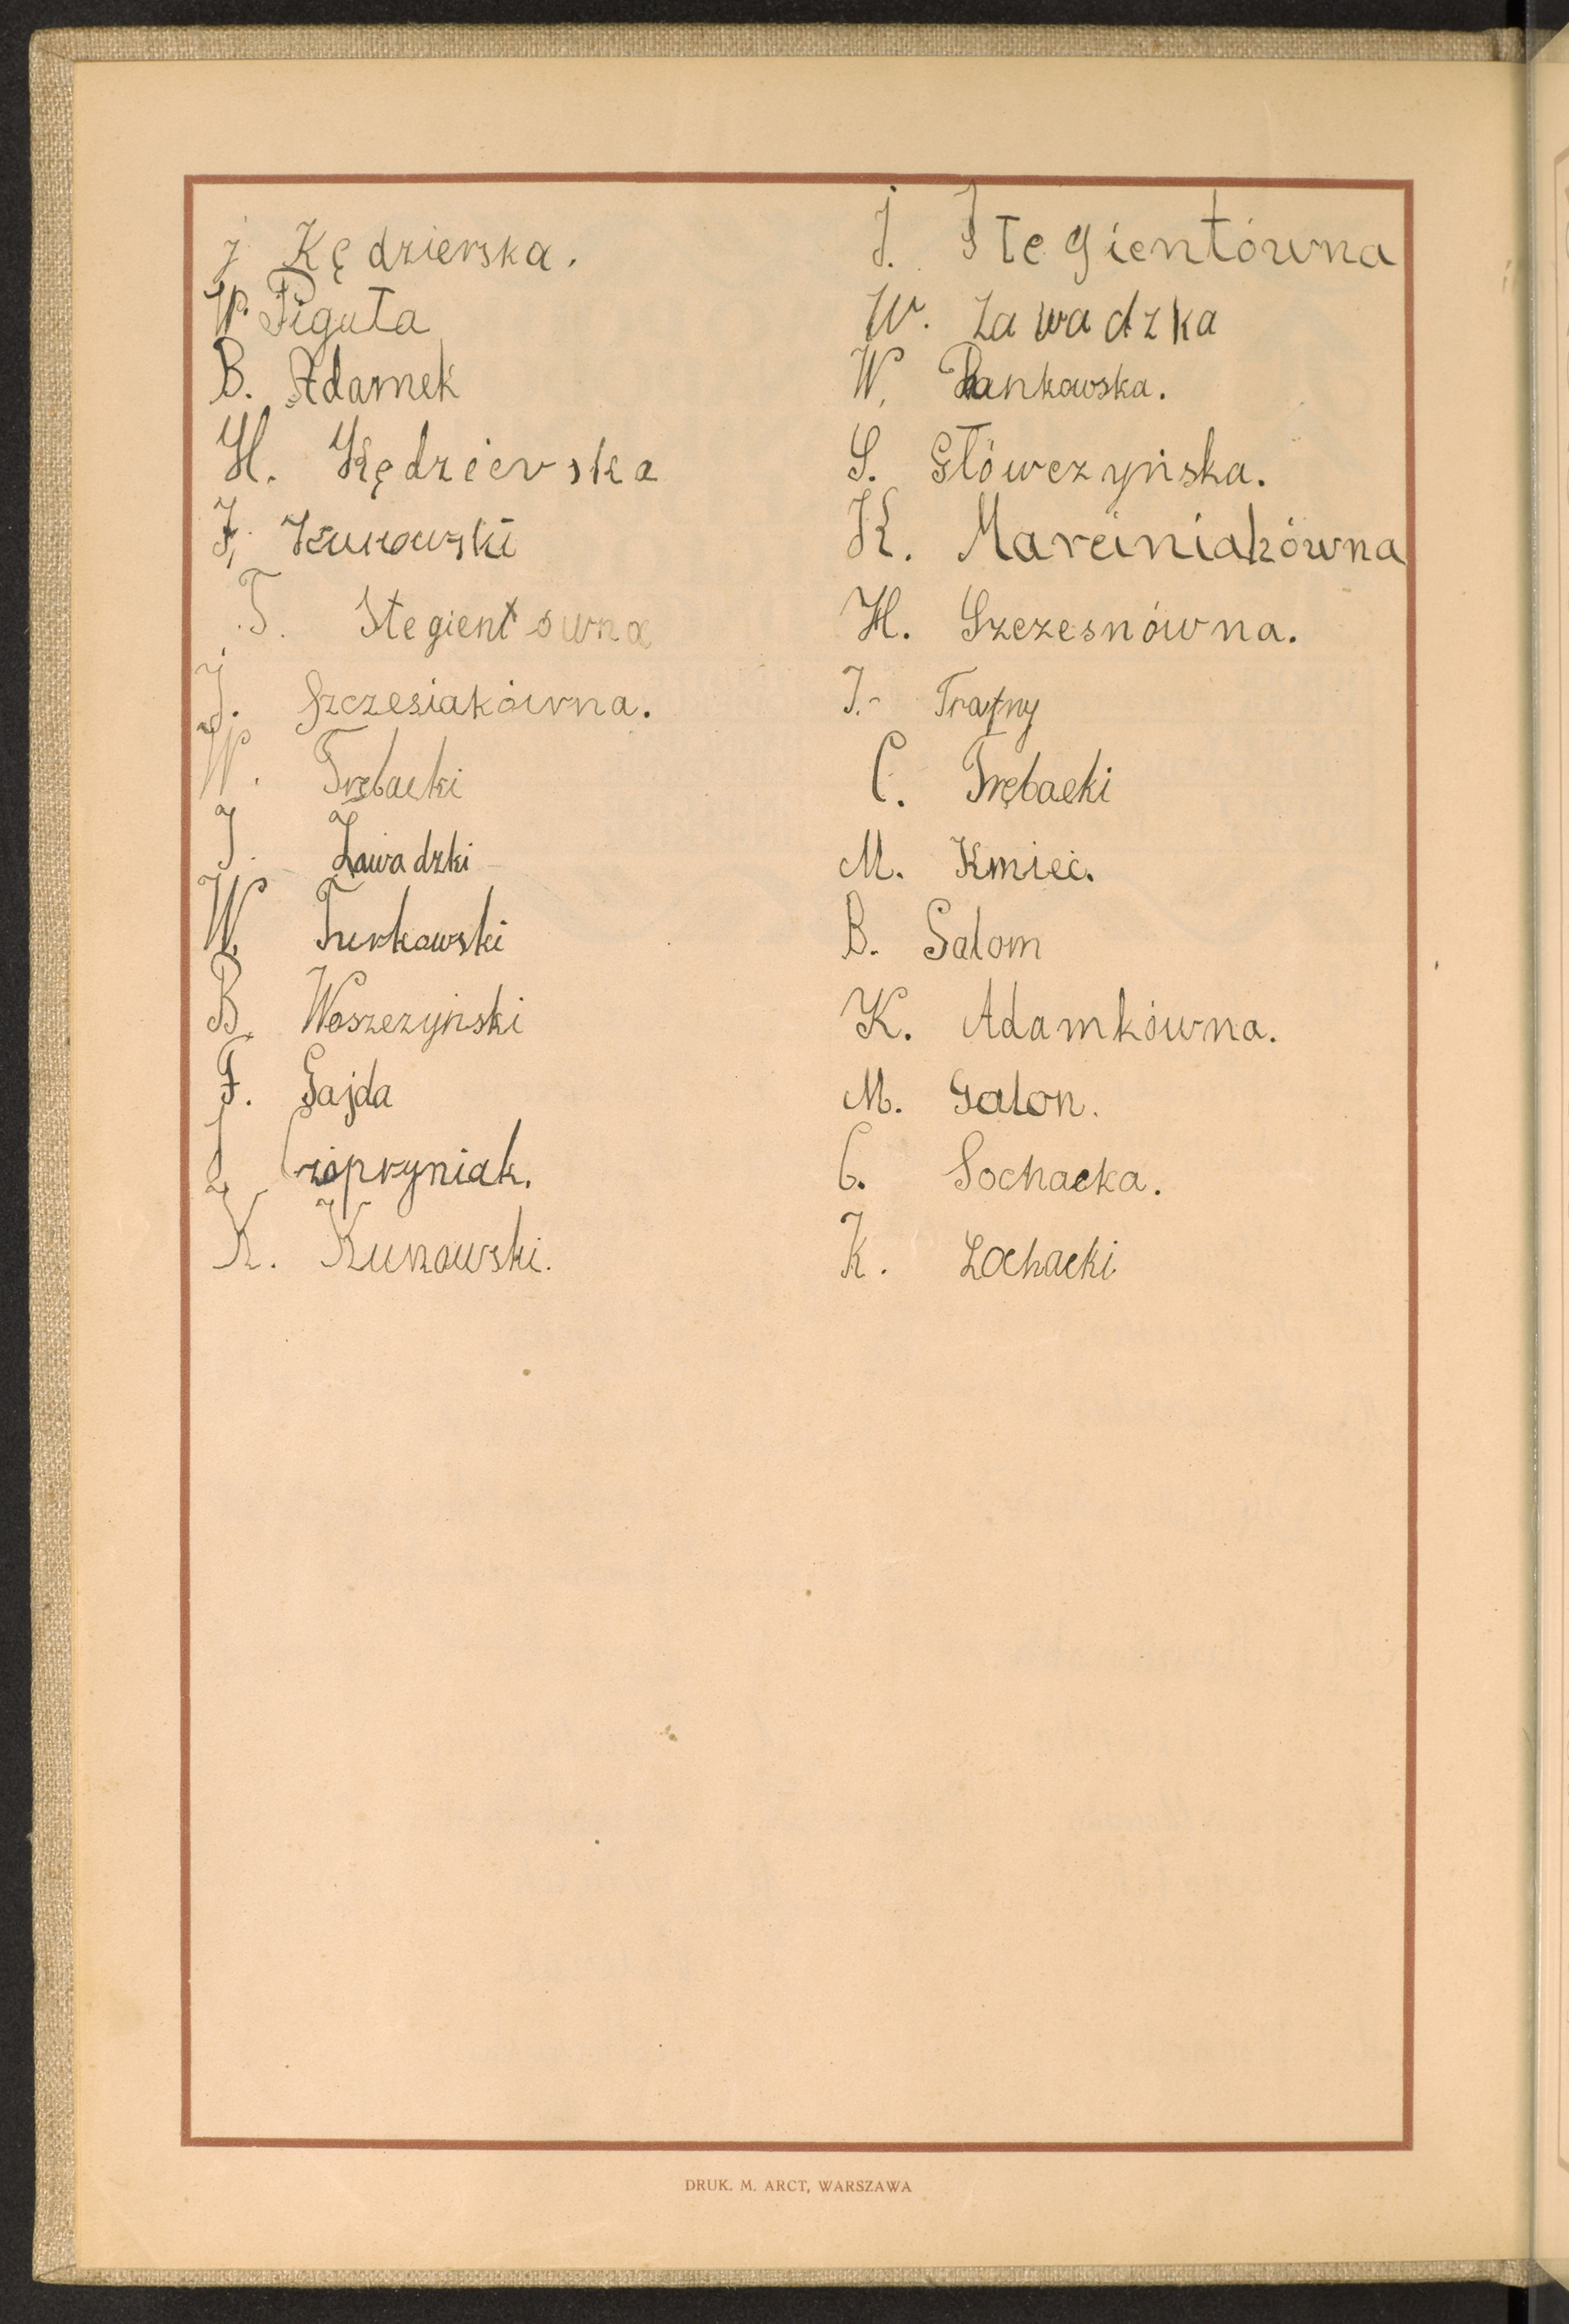 J. Kędzierska.
W. Piguła
B. Adamek
H. Kędzierska
F. Kunowski
T. Stegientówna
J. Szczesiakówna.
W. Trębacki
J. Zawadzki
W. Turkowski
B. Woszczyński
F. Gajda
J.
K. Kunowski.
J. Stegientówna
W. Zawadzka
W. Bankowska.
S. Główczyńska.
K. Marciniakówna
H. Szczesnówna.
J. Tratny
C. Trębacki
M. Kmieć.
B. Salom
K. Adamkówna.
M. Galon.
C. Sochacka.
K. Lochacki
DRUK. M. ARCT, WARSZAWA